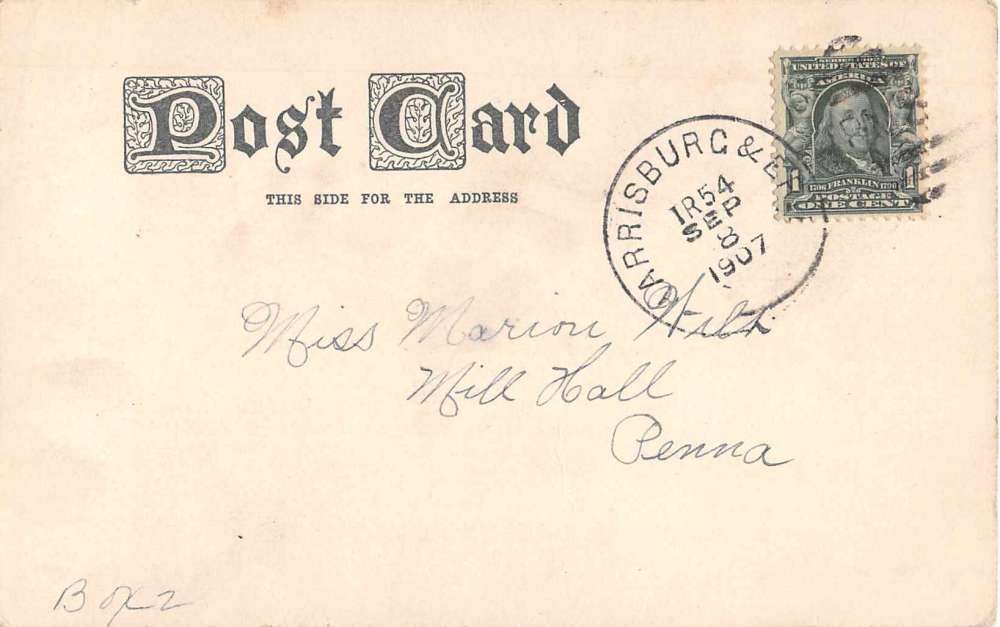 Post Card
THIS SIDE FOR THE ADDRESS
SERIES 1902
UNITED STATES OF
AMERICA
1706 FRANKLIN 1790
1 1
POSTAGE
ONE CENT
HARRISBURG &
TR 54
SEP
8
1907
Miss Marion
Mill Hall
Penna
Box 2